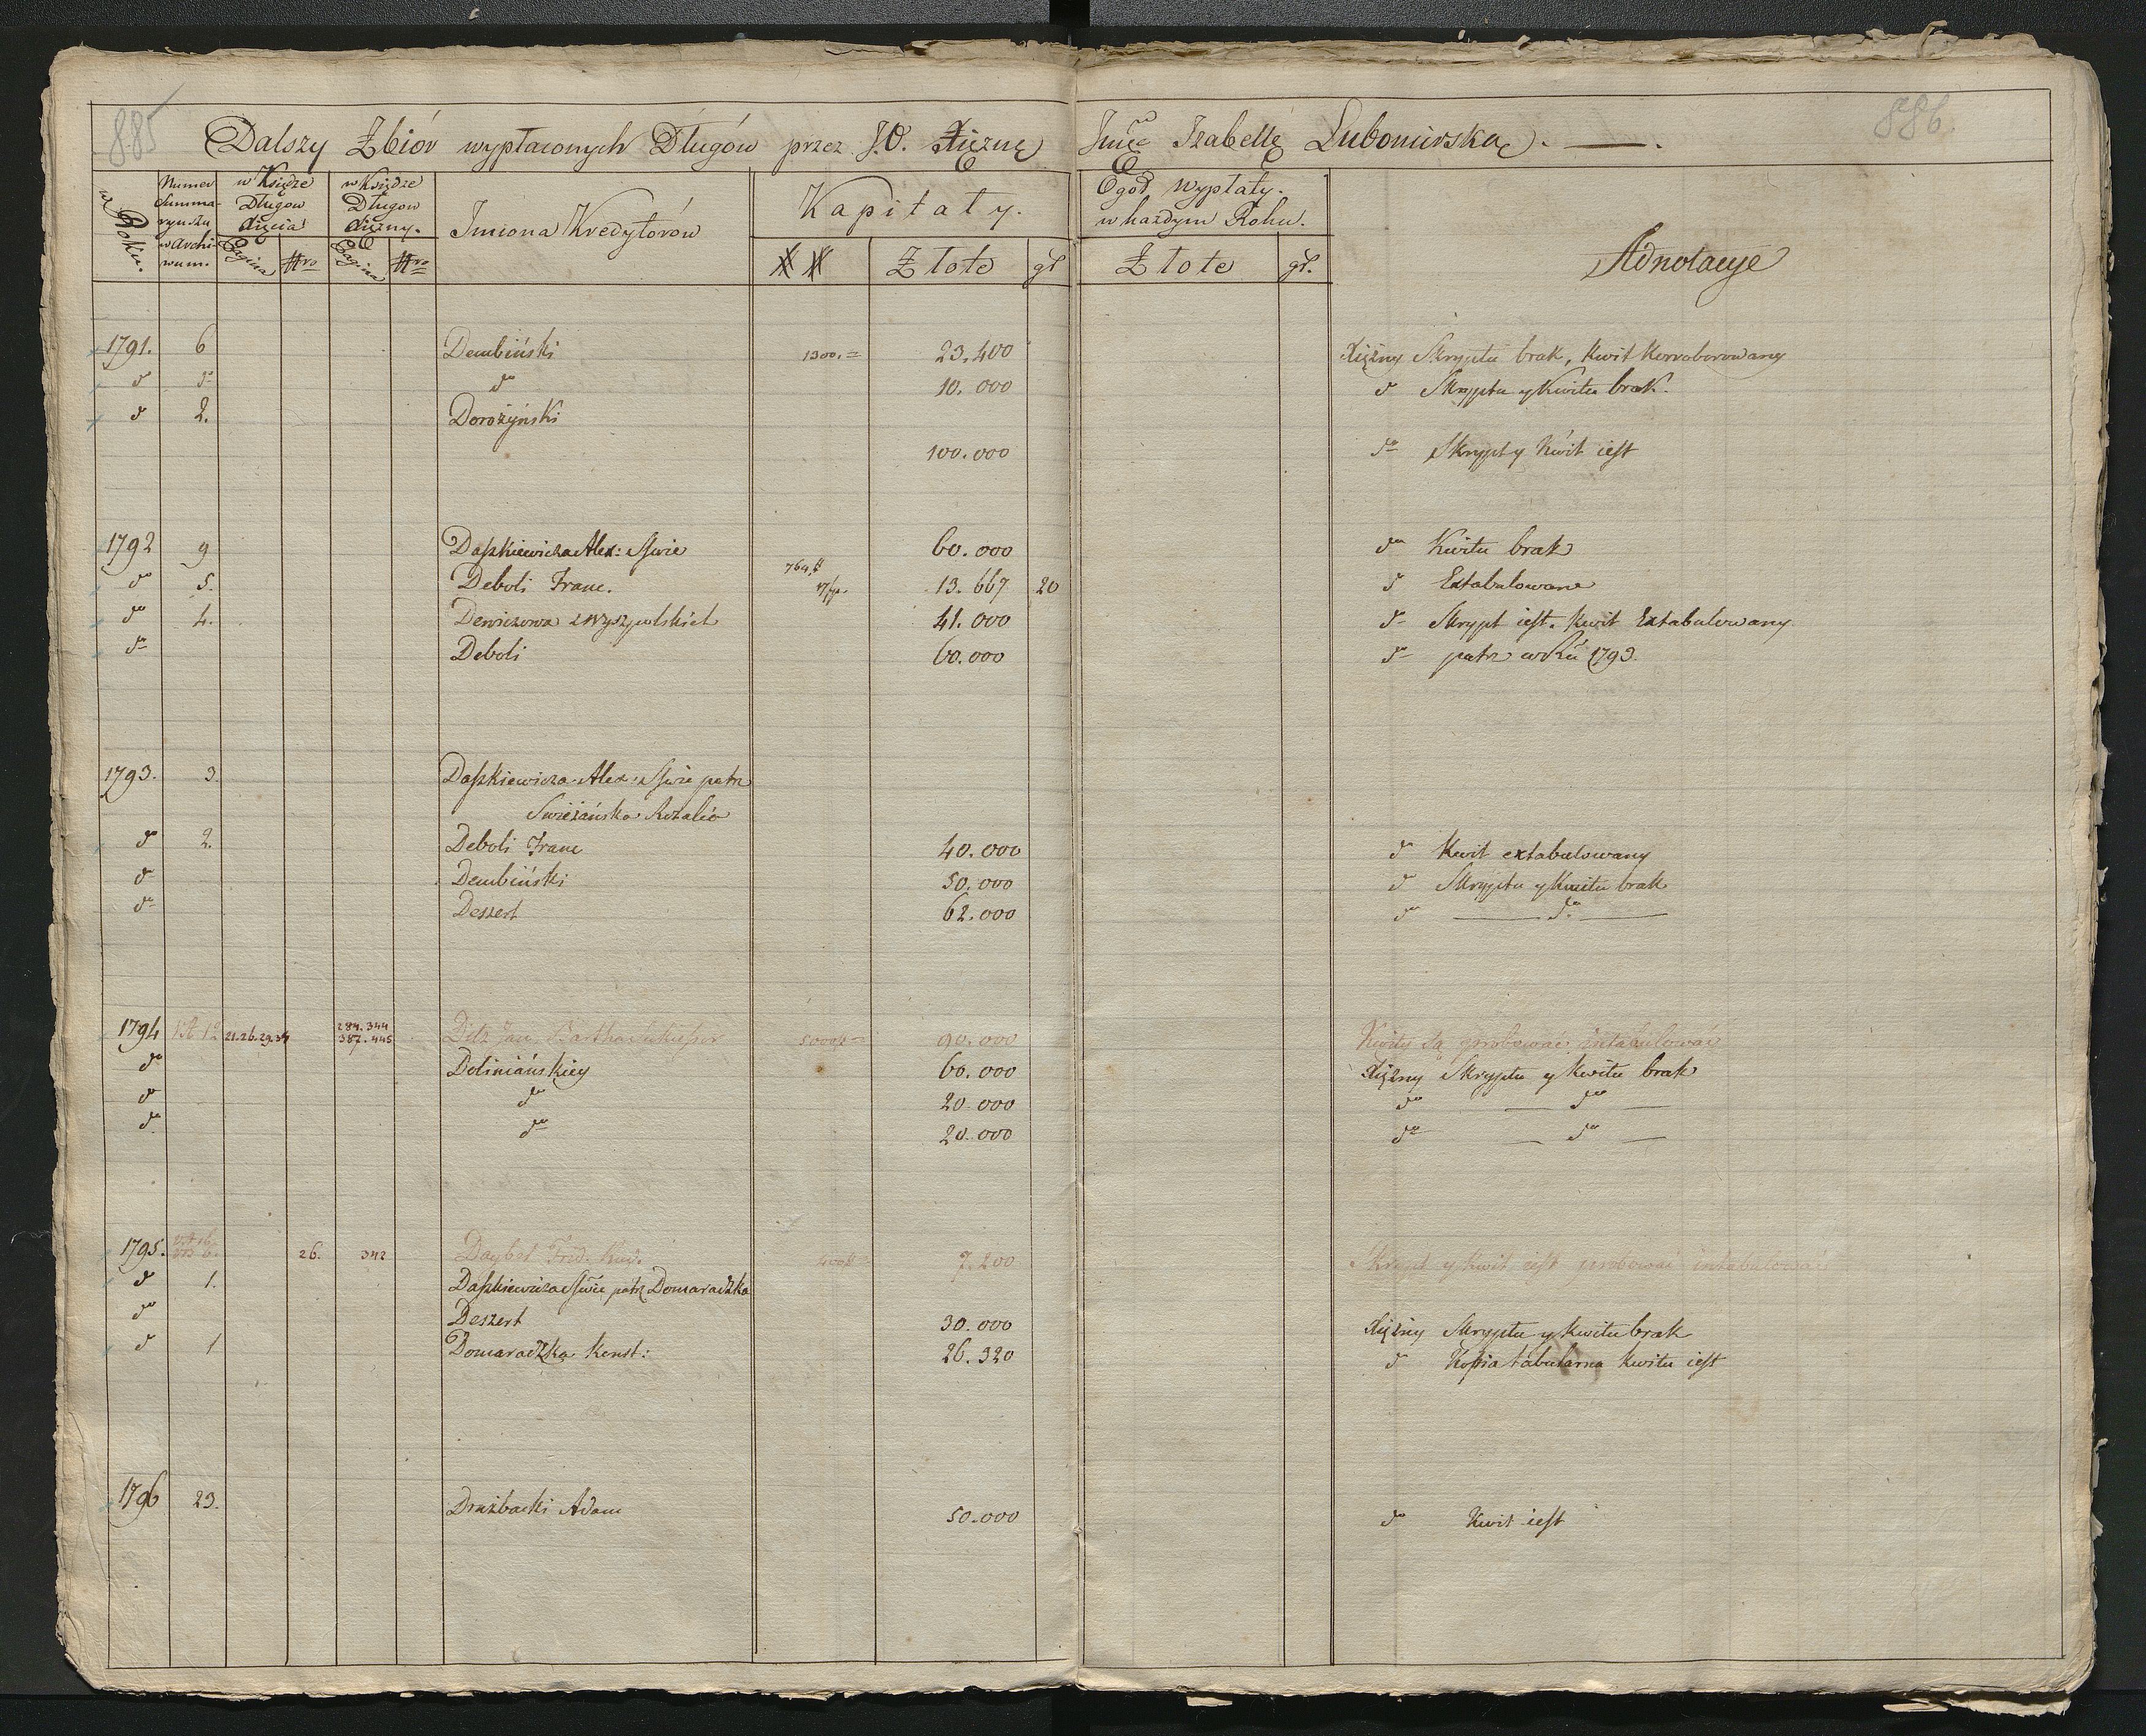 885
886
Dalszy Zbiór wypłaconych Długów przez J.O. Xiężnę Jmće Izabellę Lubomirską. — .
w Roku.
Numer Summaryuszu w Archiwum.
w Księdze Długow Xięcia
Pagina
Nro
w Księdze Długow Xiężny.
Pagina
Nro
Imiona Kredytórów
Kapitały.
XX
Złote
gł
Ogoł wypłaty. w każdym Roku.
Złote
gł.
Adnotacye
1791. 6 Dembiński 1300.= 23.400 Xiężny Skryptu brak, Kwit Korroborowany
do do do 10.000 do Skryptu y Kwitu brak.
do 2. Dorożyński
100.000 do Skrypt y Kwit iest
1792 9 Daszkiewicza Alex: Sswie 60.000 do Kwitu brak
do 5. Deboli Franc. 764 13.667 20 do Extabulowane
do 4. Dewiczowa z Wyszpolskich 41.000 do Skrypt iest. Kwit Extabulowany
do Deboli 60.000 do patrz w Ru 1793.
1793. 3. Daszkiewicza Alex: Sswie patrz
Swieżańska Rozalia
do 2. Deboli Franc 40.000 do Kwit extabulowany
do Dembiński 50.000 do Skryptu y Kwitu brak
do Deszert 62.000 do — do —
1794 12 21.26.29.34 284.344 387.445 Ditz Jan 5000 90.000 Kwity są probować intabulować
do Doliniańskiey 60.000 Xiężny Skryptu y Kwitu brak
do do 20.000 do — do —
do do 20.000 do — do —
1795. 26. 342 Daybel Frid. 400 7.200 Skrypt y Kwit iest probować intabulować
do 1. Daszkiewicza Sswie patrz Domaradzka
do Deszert 30.000 Xiężny Skryptu y Kwitu brak
do 1 Domaradzka Konst: 26.320 do Kopia tabularna Kwitu iest
1796 23. Drużbacki Adam 50.000 do Kwit iest